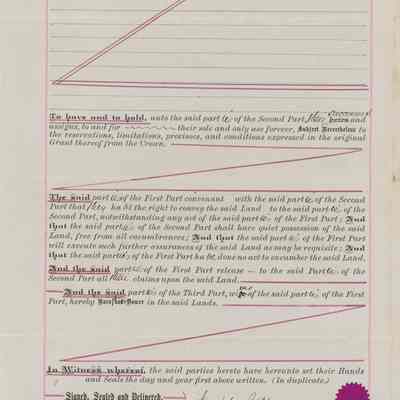 To have and to hold, unto the said parties of the Second Part, their successors and
assigns, to and for their sole and only use forever, Subject Nevertheless to
the reservations, limitations, provisoes, and conditions expressed in the original
Grant thereof from the Crown.
The said parties of the First Part covenant with the said parties of the Second
Part that they have the right to convey the said Land to the said parties of the
Second Part, notwithstanding any act of the said parties of the First Part; And
that the said parties of the Second Part shall have quiet possession of the said
Land, free from all encumbrances; And that the said parties of the First Part
will execute such further assurances of the said Land as may be requisite; And
that the said parties of the First Part have done no act to encumber the said Land.
And the said parties of the First Part release to the said Parties of the
Second Part all their claims upon the said Land.
And the said parties of the Third Part, of the said parties of the First
Part, hereby bars her Dower in the said Lands.
In Witness whereof, the said parties hereto have hereunto set their Hands
and Seals the day and year first above written. (In duplicate.)
Signed, Sealed and Delivered,